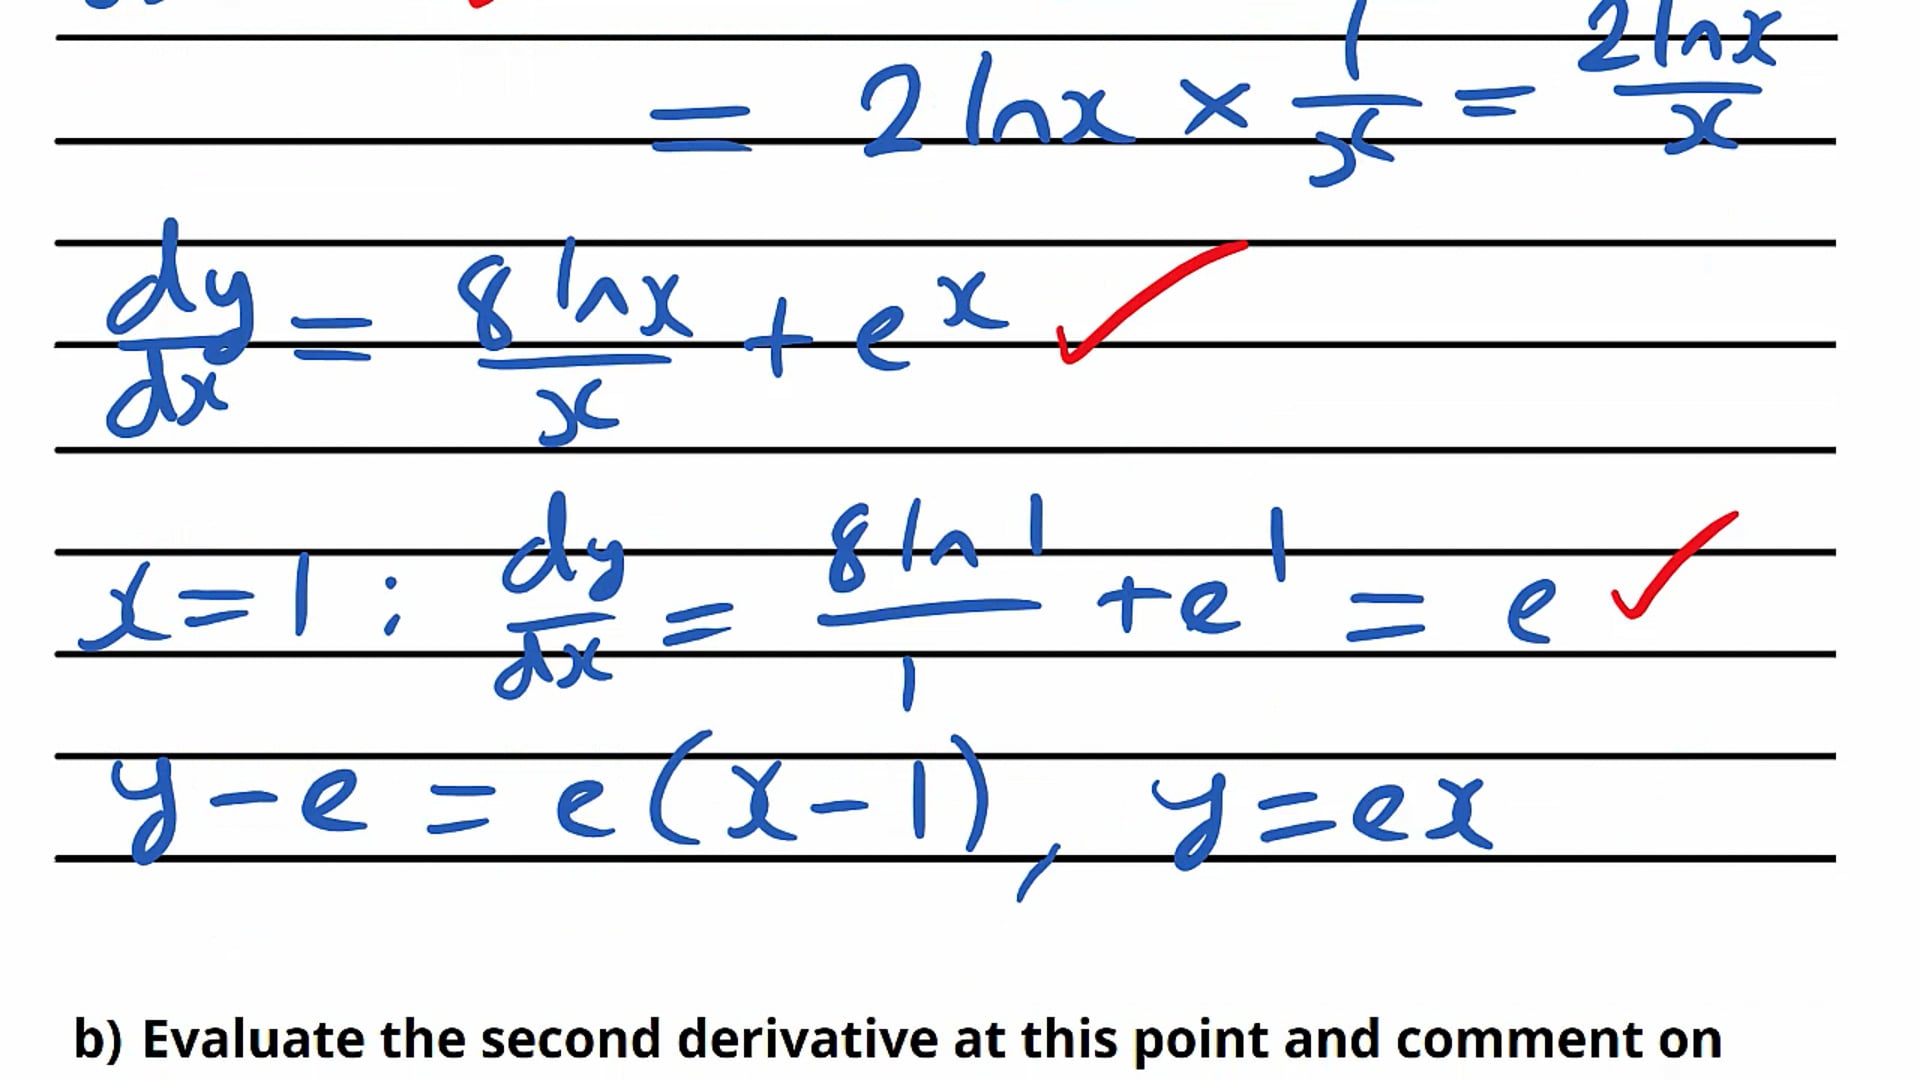 = 2 ln x × 1/x = 2 ln x / x
dy/dx = 8 ln x / x + e^x ✓
x = 1 : dy/dx = 8 ln 1 / 1 + e^1 = e ✓
y - e = e(x - 1), y = ex
b) Evaluate the second derivative at this point and comment on